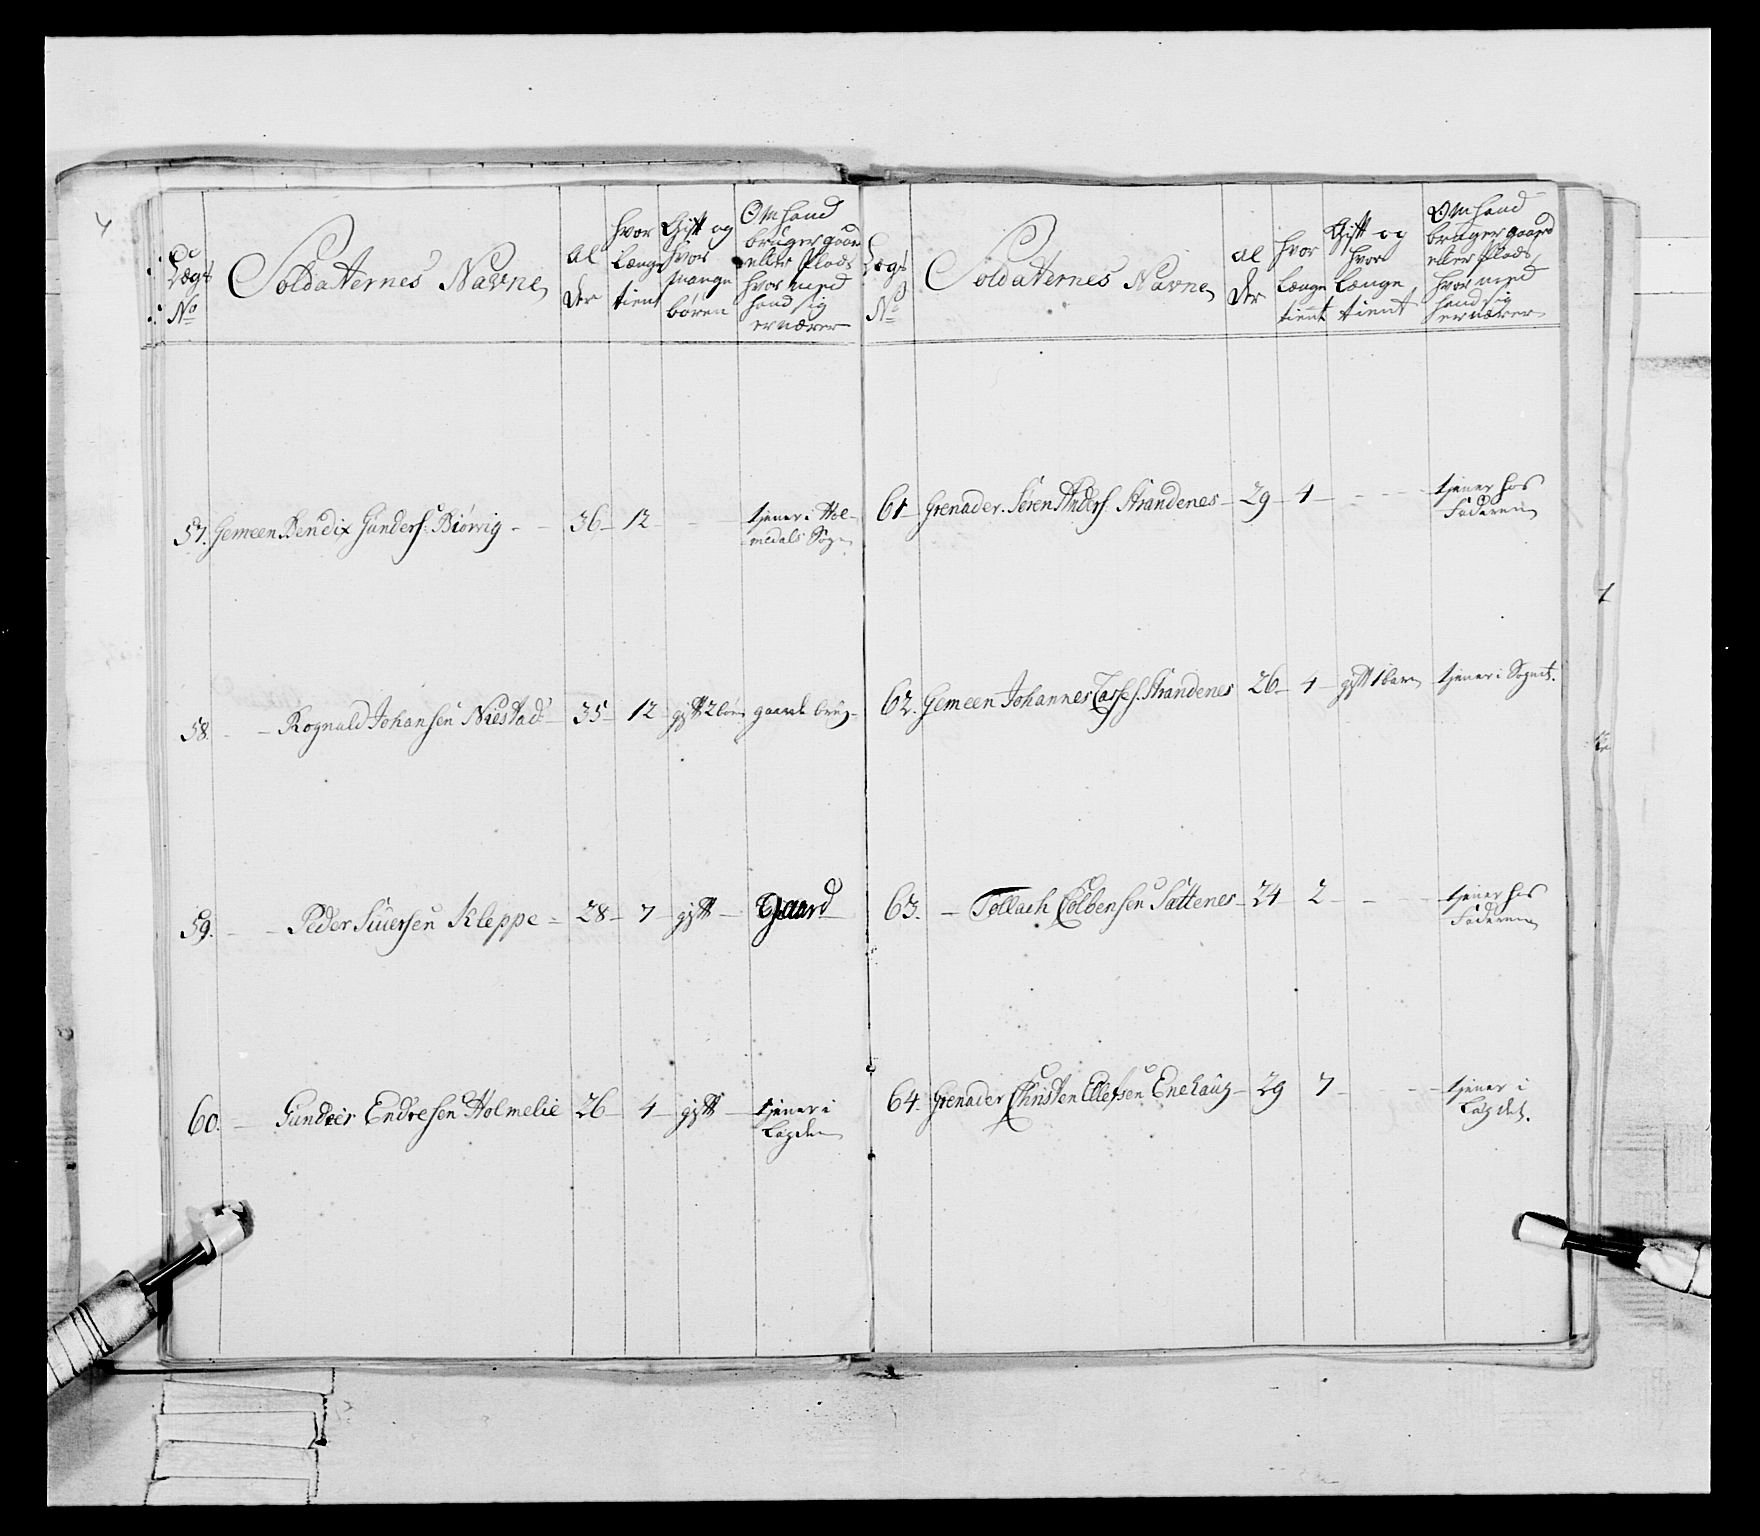 De
Lægs
No
Soldatternes Navne
Al
der
hvor
Længe
tient
Gift og
hvor
mange
børen
Om hand
bruger gaard
eller Plads
hvor med
hand sig
ernærer
57. Gemeen Bendix Gunders: Biørvig - - 36 - 12 - - tjener i Hol-
medals Sogn
58. - - Rognald Johansen Niestad - 35 - 12 - gift 2 børn gaard brug-
59. - - Peder Siuersen Kleppe - 28 - 7 - gift - Gaard
60. - Gunder Endresen Holmelie 26 - 4 - gift tjener i
Lægden
Lægs
No
Soldatternes Navne
Al
der
hvor
Længe
tiennt
Gift og
hvor
Længe
tient
Om hand
bruger gaard
eller Plads
hvor med
hand sig
ernærer
61 - Grenader. Søren Anders: Strandenes - 29 - 4 - - - - tjener hos
Faderen
62. Gemeen Johannes Strandenes 26 - 4 - gift 1 barn tjener i Sognet.
63. - Tollach Colbensen Sattenes - 24 - 2 - - - tjener hos
Faderen
64. Grenader Christen Ellefsen Enehaug - 29 7 - - - tjener i
Lægdet.